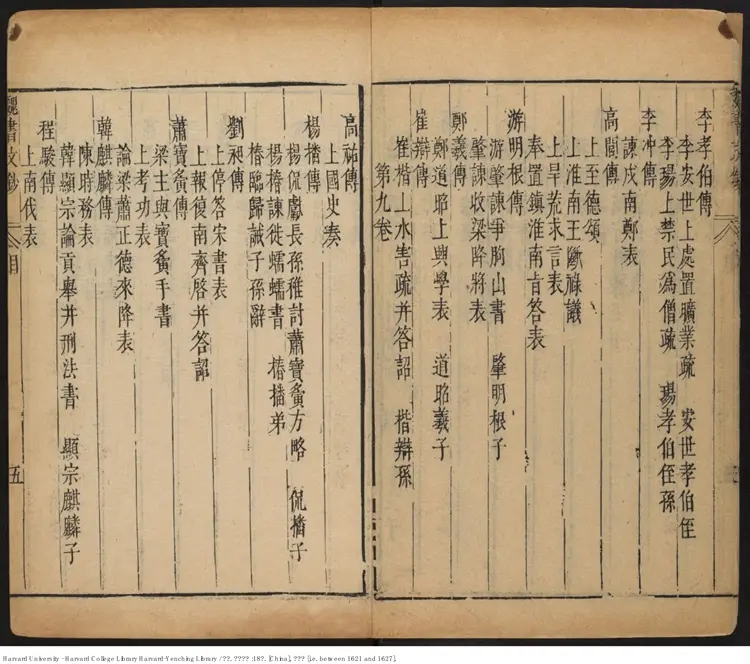 李孝伯傳
李安世上處置曠業疏 安世孝伯侄
李瑒上禁民爲僧疏 瑒孝伯侄孫
李冲傳
諫戍南鄭表
高閭傳
上至德頌
上淮南王斷祿議
上旱荒求言表
奉置鎮淮南肯答表
游明根傳
游肇諫爭朐山書 肇明根子
肇諫收梁降將表
鄭羲傳
鄭道昭上興學表 道昭羲子
崔辯傳
崔楷上水害疏并答詔 楷辯孫
第九卷
高祐傳
上國史奏
楊播傳
楊侃獻長孫稚討蕭寶夤方略 侃播子
楊椿諫徙蠕蠕書 椿播弟
椿臨歸誡子孫辭
劉昶傳
上停答宋書表
上報復南齊啓并答詔
蕭寶夤傳
梁主與寶夤手書
上考功表
論梁蕭正德來降表
韓麒麟傳
陳時務表
韓顯宗論貢舉并刑法書 顯宗麒麟子
程駿傳
上南伐表
魏書文鈔 目 五
Harvard University - Harvard College Library Harvard-Yenching Library / ??. ???? :18?. [China], ??? [i.e. between 1621 and 1627].